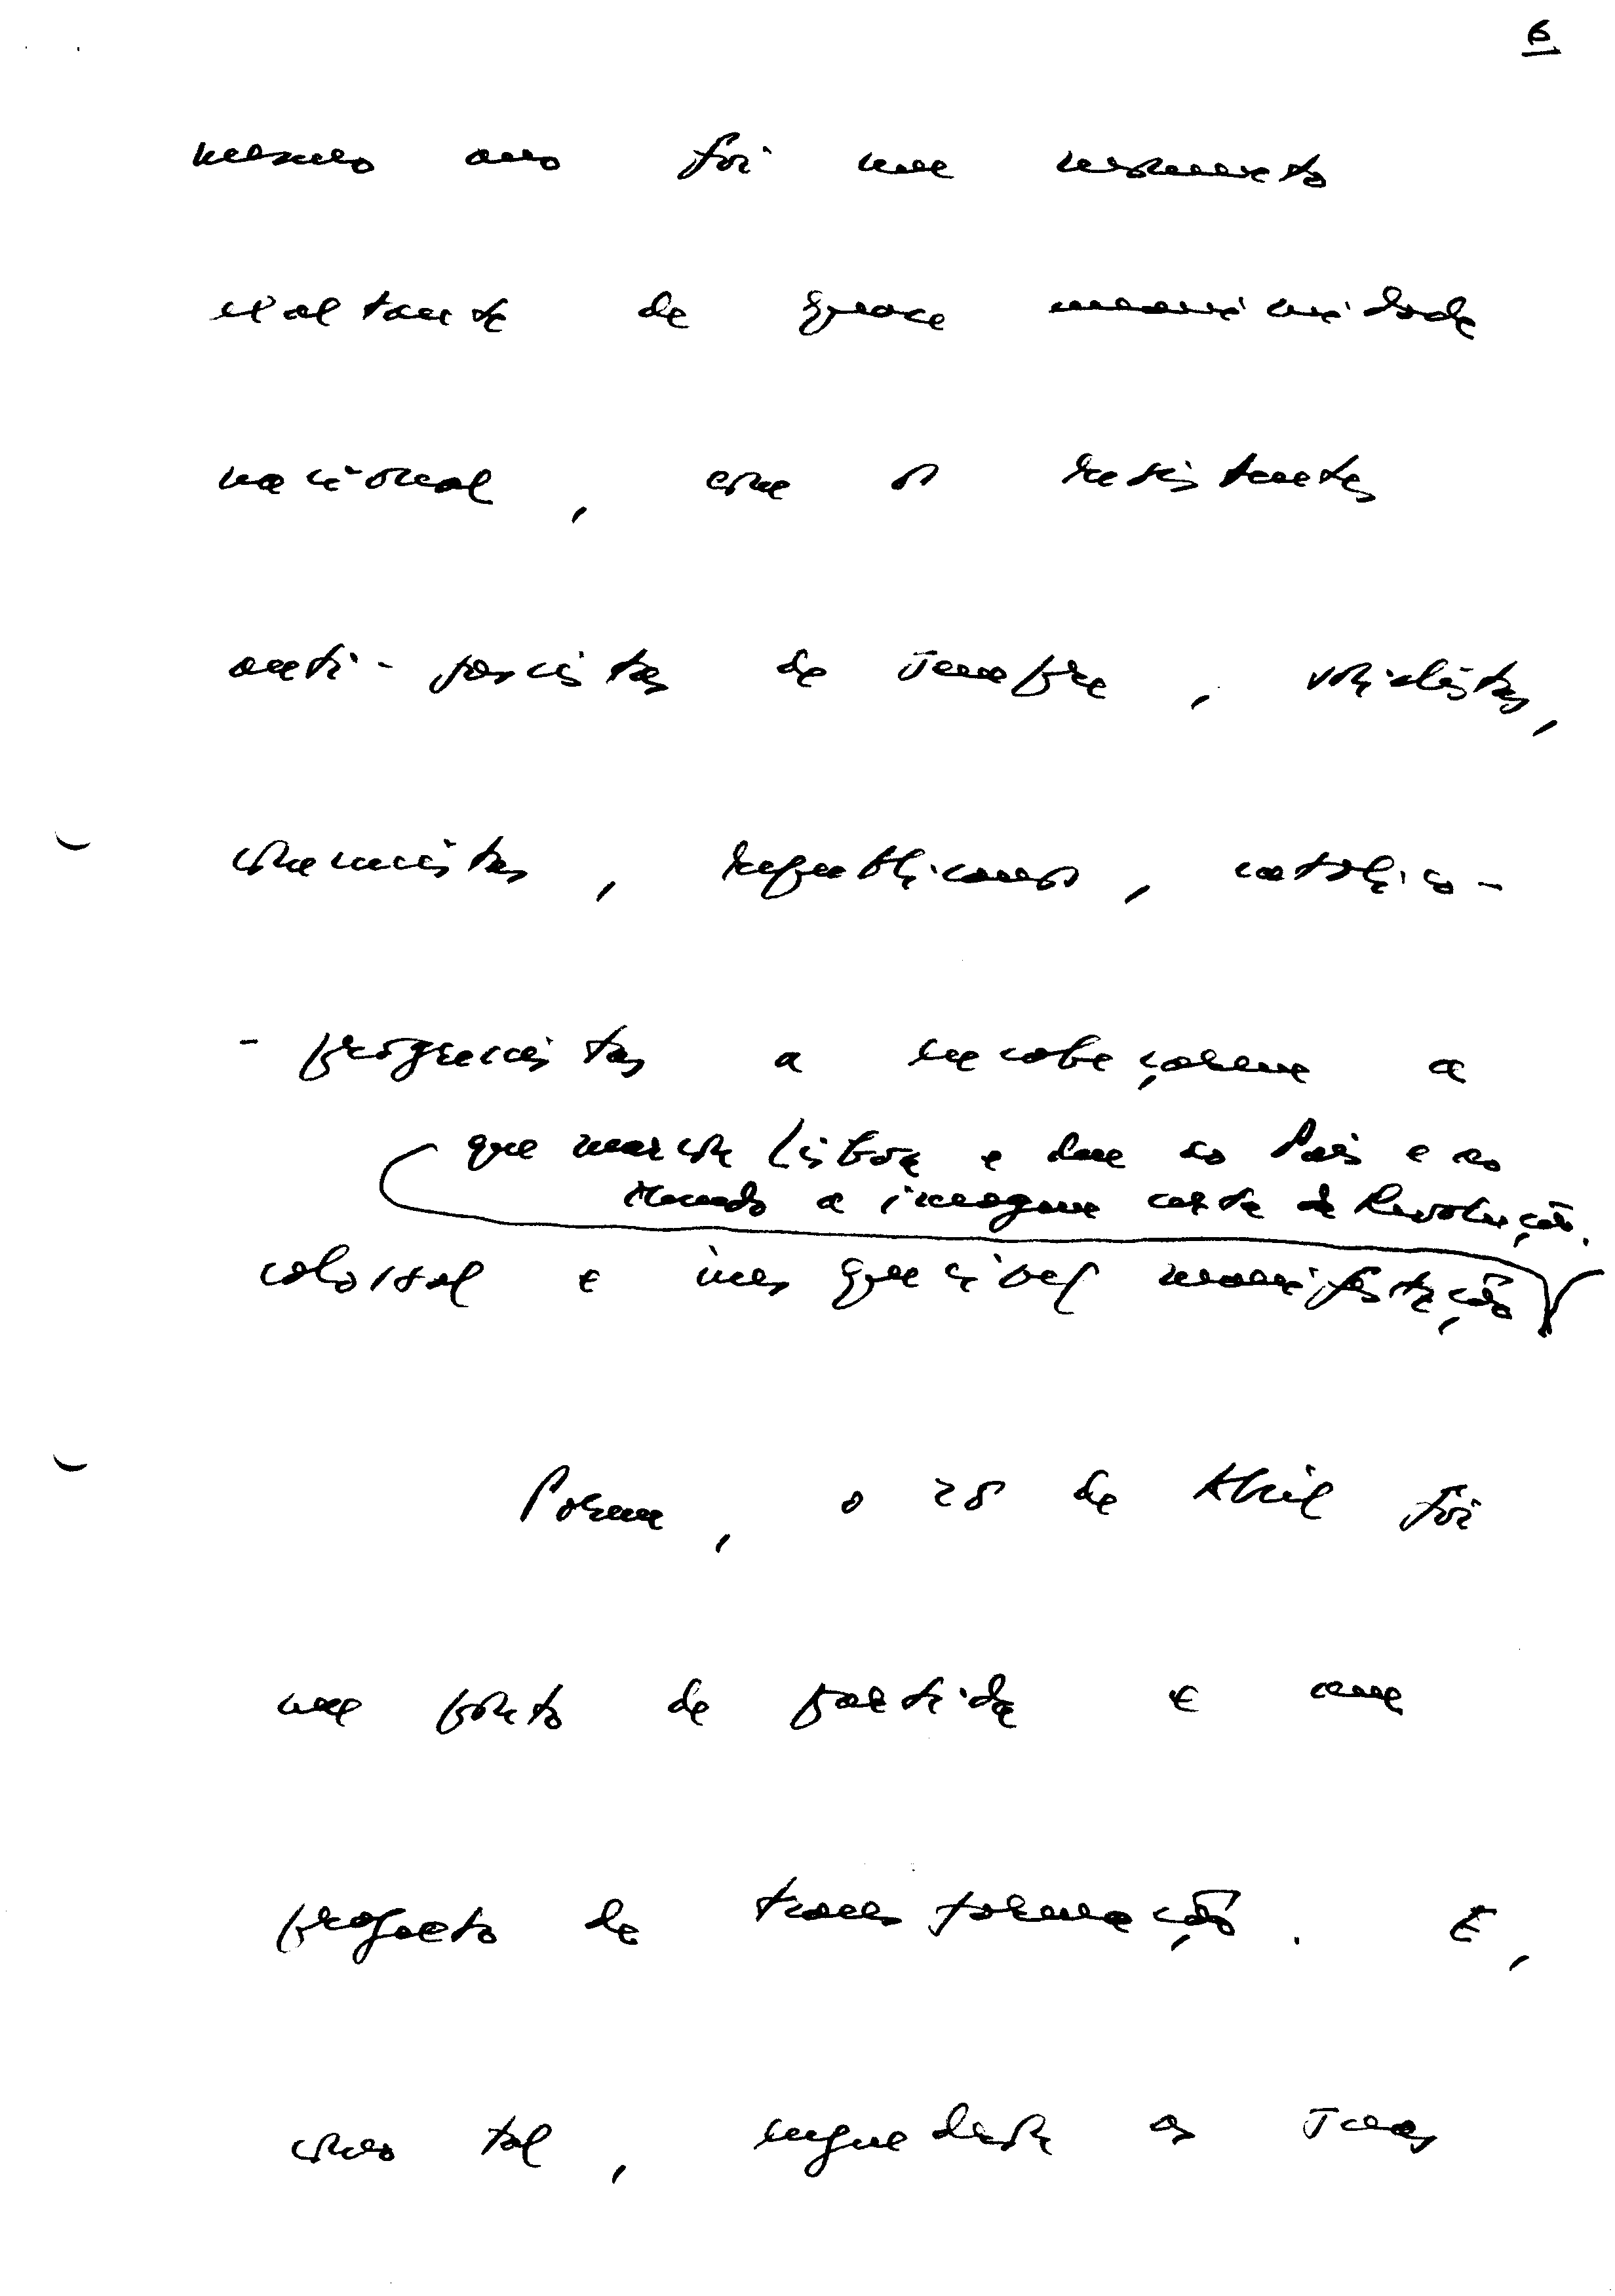 6
mesmo ano foi um momento
exaltante de quase unanimidade
nacional, com os resistentes
anti-fascistas de sempre, socialistas,
comunistas, republicanos, católico-
-progressistas a encabeçarem a
colossal e inesquecível manifestação
que marcou Lisboa e deu ao País e ao
Mundo a imagem certa da Revolução.
Porém, o 25 de Abril foi
um ponto de partida e um
projecto de transformação. E,
como tal, as suas